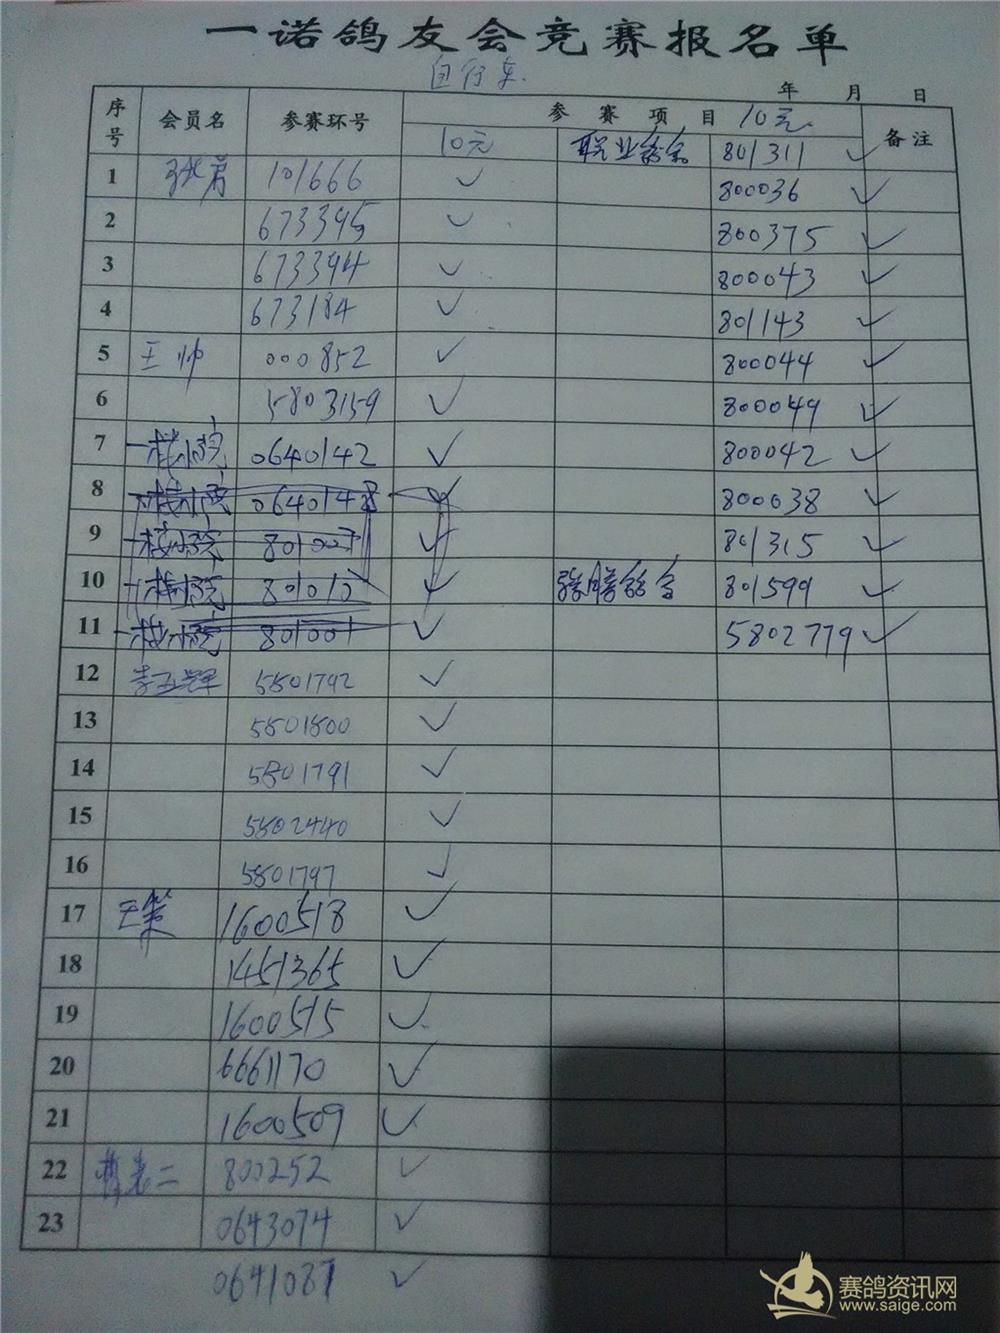 一诺鸽友会竞赛报名单
自行车
年 月 日
序号 会员名 参赛环号 参赛项目 10元 备注
10元 职业鸽舍 801311 ✓
1 101666 ✓ 800036 ✓
2 673395 ✓ 800375 ✓
3 673394 ✓ 800043 ✓
4 673184 ✓ 801143 ✓
5 王帅 000852 ✓ 800044 ✓
6 5803159 ✓ 800049 ✓
7 一栈小院 0640142 ✓ 800042 ✓
8 一栈小院 0640148 ✓ 800038 ✓
9 一栈小院 801007 ✓ 801315 ✓
10 一栈小院 801010 ✓ 鸽舍 801599 ✓
11 一栈小院 801001 ✓ 5802779 ✓
12 李五辉 5801792 ✓
13 5801800 ✓
14 5801791 ✓
15 5802440 ✓
16 5801797 ✓
17 1600518 ✓
18 1451365 ✓
19 1600515 ✓
20 6661170 ✓
21 1600509 ✓
22 老二 800252 ✓
23 0643074 ✓
0641087 ✓
赛鸽资讯网
www.saige.com